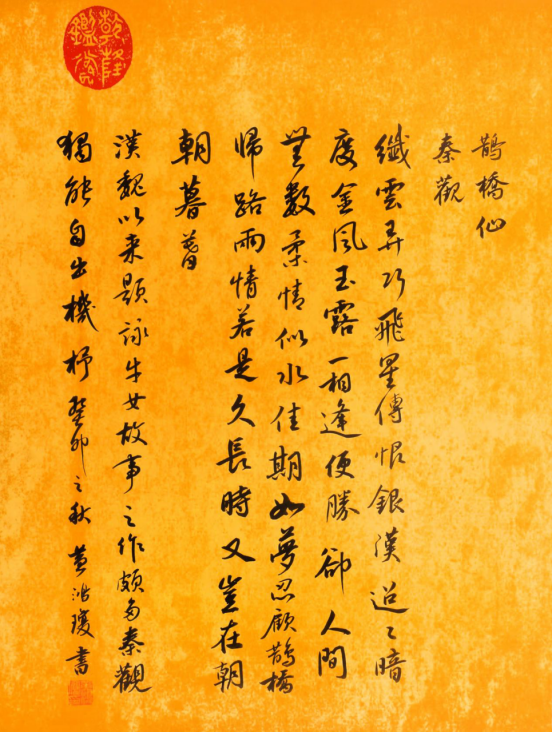 乾隆鑑賞
鵲橋仙
秦觀
纖雲弄巧飛星傳恨銀漢迢〻暗
度金風玉露一相逢便勝卻人間
無數柔情似水佳期如夢忍顧鵲橋
歸路兩情若是久長時又豈在朝
朝暮暮
漢魏以来題詠牛女故事之作頗多秦觀
獨能自出機杼 癸卯之秋 黃瓊書